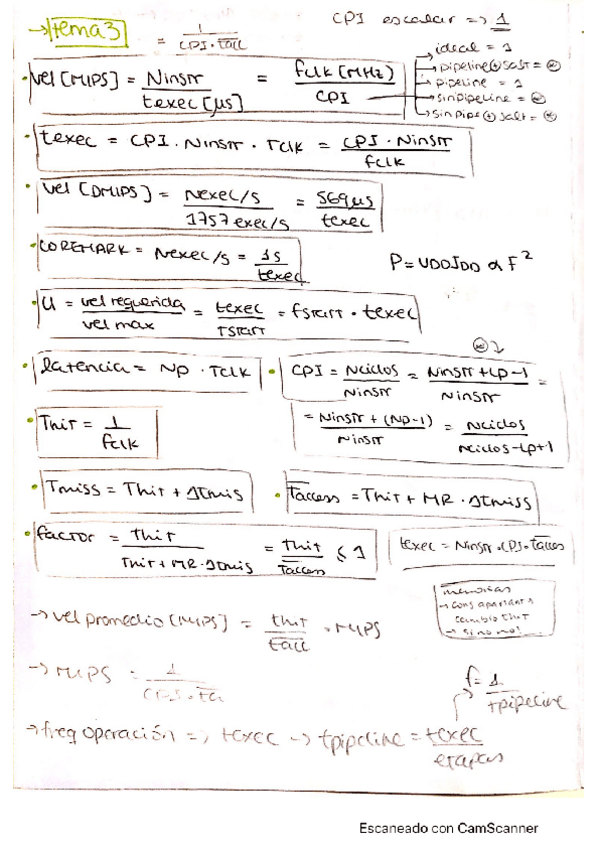 → tema 3
= 1 / (CPI · tacc)
CPI escalar => 1
→ ideal = 1
→ pipeline ⊕ salt = ⊛
→ pipeline = 1
→ sin pipeline = ⊛
→ sin pipe ⊕ salt = ⊛
• Vel [MIPS] = Ninstr / texec [μs] = fclk [MHz] / CPI
• texec = CPI · Ninstr · Tclk = CPI · Ninstr / fclk
• vel [DMIPS] = Nexec/s / 1757 exec/s = 569μs / texec
• COREMARK = Nexec/s = 1s / texec
P = VDDIDD α F²
• U = vel requerida / vel max = texec / Tstart = fstart · texec
⊛
• latencia = Np · Tclk
• CPI = Nciclos / Ninstr = Ninstr + Lp - 1 / Ninstr =
= Ninstr + (Np-1) / Ninstr = Nciclos / Nciclos - Lp + 1
• Thit = 1 / fclk
• Tmiss = Thit + Δtmis
• Taccess = Thit + MR · Δtmiss
• factor = thit / Thit + MR · Δtmis = thit / Taccess ≤ 1
texec = Ninstr · CPI · Tacces
memorias
→ cons apartants
cambio thit
→ si no no!
→ vel promedio [MIPS] = thit / tacc · MIPS
→ MIPS = 1 / CPI · ta
f = 1 / tpipeline
→ freq operación => texec → tpipeline = texec / etapas
Escaneado con CamScanner